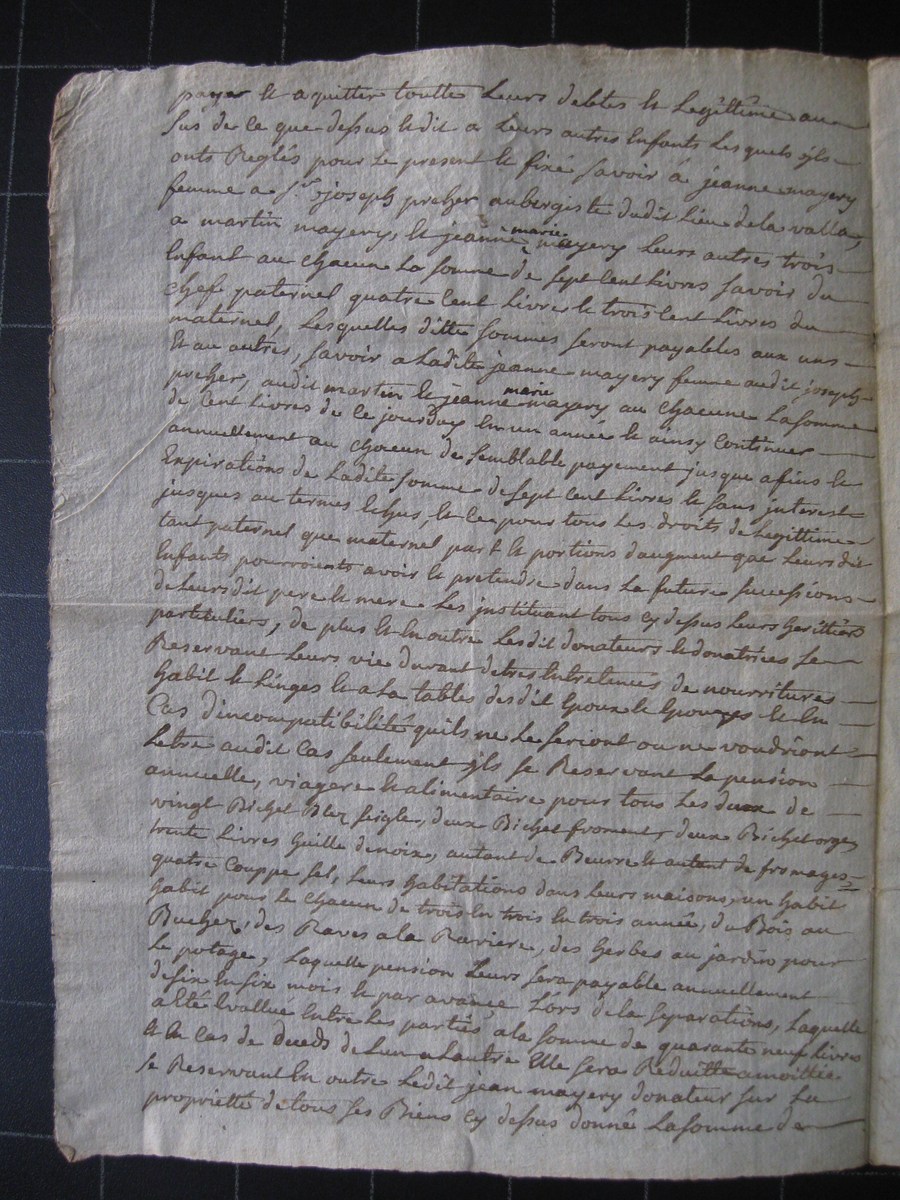 payer et aquitter toutte Leurs debtes et Legittime au
sus de ce que dessus et dit a Leurs autres Enfants Lesquels yls
onts Reglés pour Le present et fixé savoir á jeanne mayery
femme a Sr joseph preher aubergiste dudit Lieu de la valla,
a martin mayery, et jeanne marie mayery Leurs autres trois
Enfant au chacun La somme de sept cent livres savoir du
chef paternel quatre cent Livre et trois cent Livres du
maternel, Lesquelles ditte sommes seront payables aux uns
et au autres, savoir a Ladite jeanne mayery femme audit joseph
preher, audit martin et jeanne marie mayery au chacune La somme
de cent Livres de ce jourduy en un année et ainsy continuer
annuellement au chacun de semblable payement jusque afins et
Expirations de Ladite somme de sept cent Livres et sans interest
jusques au termes Echus, et ce pour tous Les droits de Legittime
tant paternel que maternel part et portions daugment que Leursdit
Enfants pourroients avoir et pretendre dans La future successions
de Leursdit pere et mere Les instituant tous cy dessus Leurs heritiers
particuliers, de plus et En outre Lesdit donateurs et donatrices se
Reservant Leurs vie durant detres Entretenues de nourritures
habit et Linges et a La tables desdit Epoux et Epouzes et En
Cas dincompatibilité quils ne Le seriont ou ne voudriont
Letre audit Cas seulement yls se Reservant La pension
annuelle, viagere et alimentaire pour tous Les deux de
vingt Bichet Blez seigle, deux Bichet froment, deux Bichet orge,
trente Livres huille denoix, autant de Beurre et autant de fromages
quatre Couppe sel, Leurs habitations dans leurs maisons, un habit
habit pour le chacun de trois En trois En trois année, du Bois au
Bucher, des Raves a la Raviere, des herbes au jardin pour
Le potage, Laquelle pension Leurs sera payable annuellement
de six En six mois et par avance Lors de la separations, Laquelle
a Eté Evallué Entre Les parties a la somme de quarante neuf Livres
et En Cas de deceds de Lun a Lautre Elle sera Reduitte amoittiée.
se Reservant En outre Ledit jean mayery donateur sur La
propriette de tous ses Biens cy dessus donné La somme de